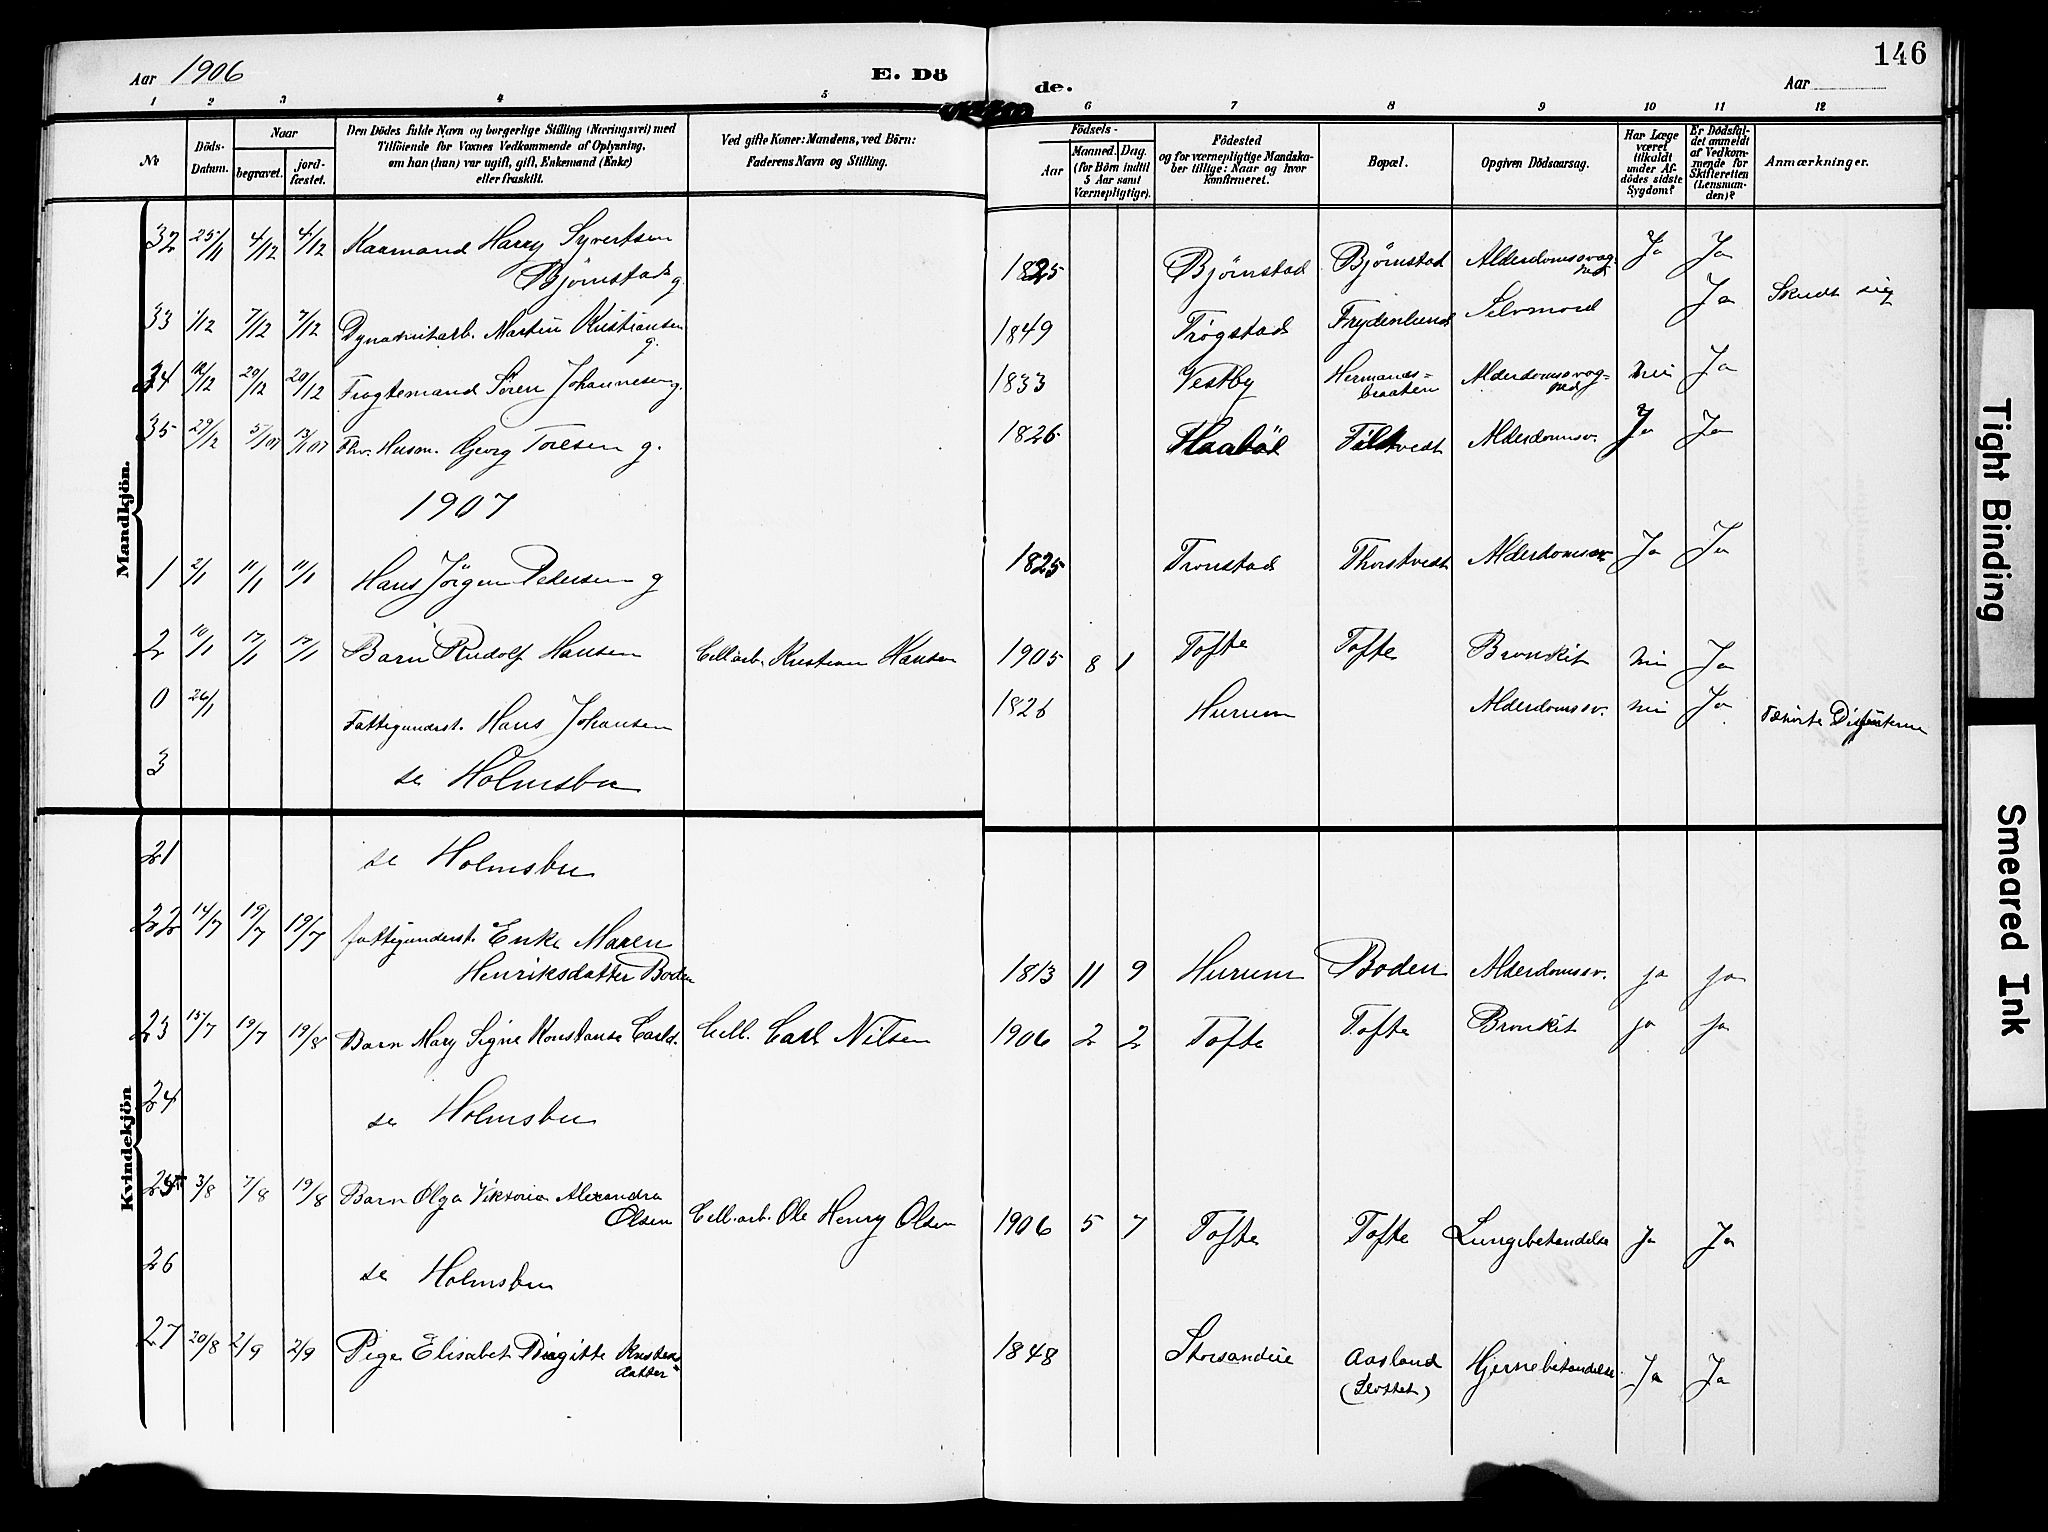 Aar 1906
E. Dö
de.
Aar
146
1 2 3 4 5 6 7 8 9 10 11 12
No
Döds-Datum.
Naar
begravet.
jord-fæstet.
Den Dödes fulde Navn og borgerlige Stilling (Næringsvei) med
Tilföiende for Voxnes Vedkommende af Oplysning,
om han (hun) var ugift, gift, Enkemand (Enke)
eller fraskilt.
Ved gifte Koner: Mandens, ved Börn:
Faderens Navn og Stilling.
Födsels-
Aar
Maaned. Dag.
(for Börn indtil
5 Aar samt
Værnepligtige).
Födested
og for værnepligtige Mandska-
ber tillige: Naar og hvor
konfirmeret.
Bopæl.
Opgiven Dödsaarsag.
Har Læge
været
tilkaldt
under Af-
dödes sidste
Sygdom?
Er Dödsfal-
det anmeldt
af Vedkom-
mende for
Skifteretten
(Lensman-
den)?
Anmærkninger.
Mandkjön.
32 25/11 4/12 4/12 Kaarmand Harry Syvertsen
Bjørnstad g. 1825 Bjørnstad Bjørnstad Alderdomssvag-hed Ja Ja
33 1/12 7/12 7/12 Dynamitarb. Martin Kristiansen g. 1849 Trøgstad Frydenlund Selvmord Ja Skudt sig
34 12/12 20/12 20/12 Fragtemand Sören Johannesen g. 1833 Vestby Hermands=braaten Alderdomssvag-hed nei Ja
35 29/12 5/1 07 13/1 07 Fhv. Husm. Georg Toresen g. 1826 Haabøl Filtvedt Alderdomssv. Ja Ja
1907
1 2/1 11/1 11/1 Hans Jörgen Pedersen g 1825 Tronstad Thorstvedt Alderdomssv Ja Ja
2 10/1 17/1 17/1 Barn Rudolf Hansen Cell.arb. Kristian Hansen 1905 8 1 Tofte Tofte Bronkit nei Ja
0 26/1 Fattigunderst. Hans Johansen 1826 Hurum Alderdomssv. nei Ja
3 se Holmsbu
Kvindekjön
21 se Holmsbu
22 14/7 19/7 19/7 fattigunderst. Enke Maren
Henriksdatter Boden 1813 11 9 Hurum Boden Alderdomssv. ja ja
23 15/7 19/7 19/8 Barn Mary Signe Konstanse Carls. Cell. Carl Nilsen 1906 2 2 Tofte Tofte Bronkit ja ja
24 se Holmsbu
25 3/8 7/8 19/8 Barn Olga Viktoria Alexandra
Olsen Cell.arb. Ole Henry Olsen 1906 5 7 Tofte Tofte Lungebetændelse Ja Ja
26 se Holmsbu
27 20/8 2/9 2/9 Pige Elisabet Birgitte Kristens=datter 1848 Storsandeie Aasland
(Slottet) Hjernebetændelse Ja Ja
Tight Binding
Smeared Ink